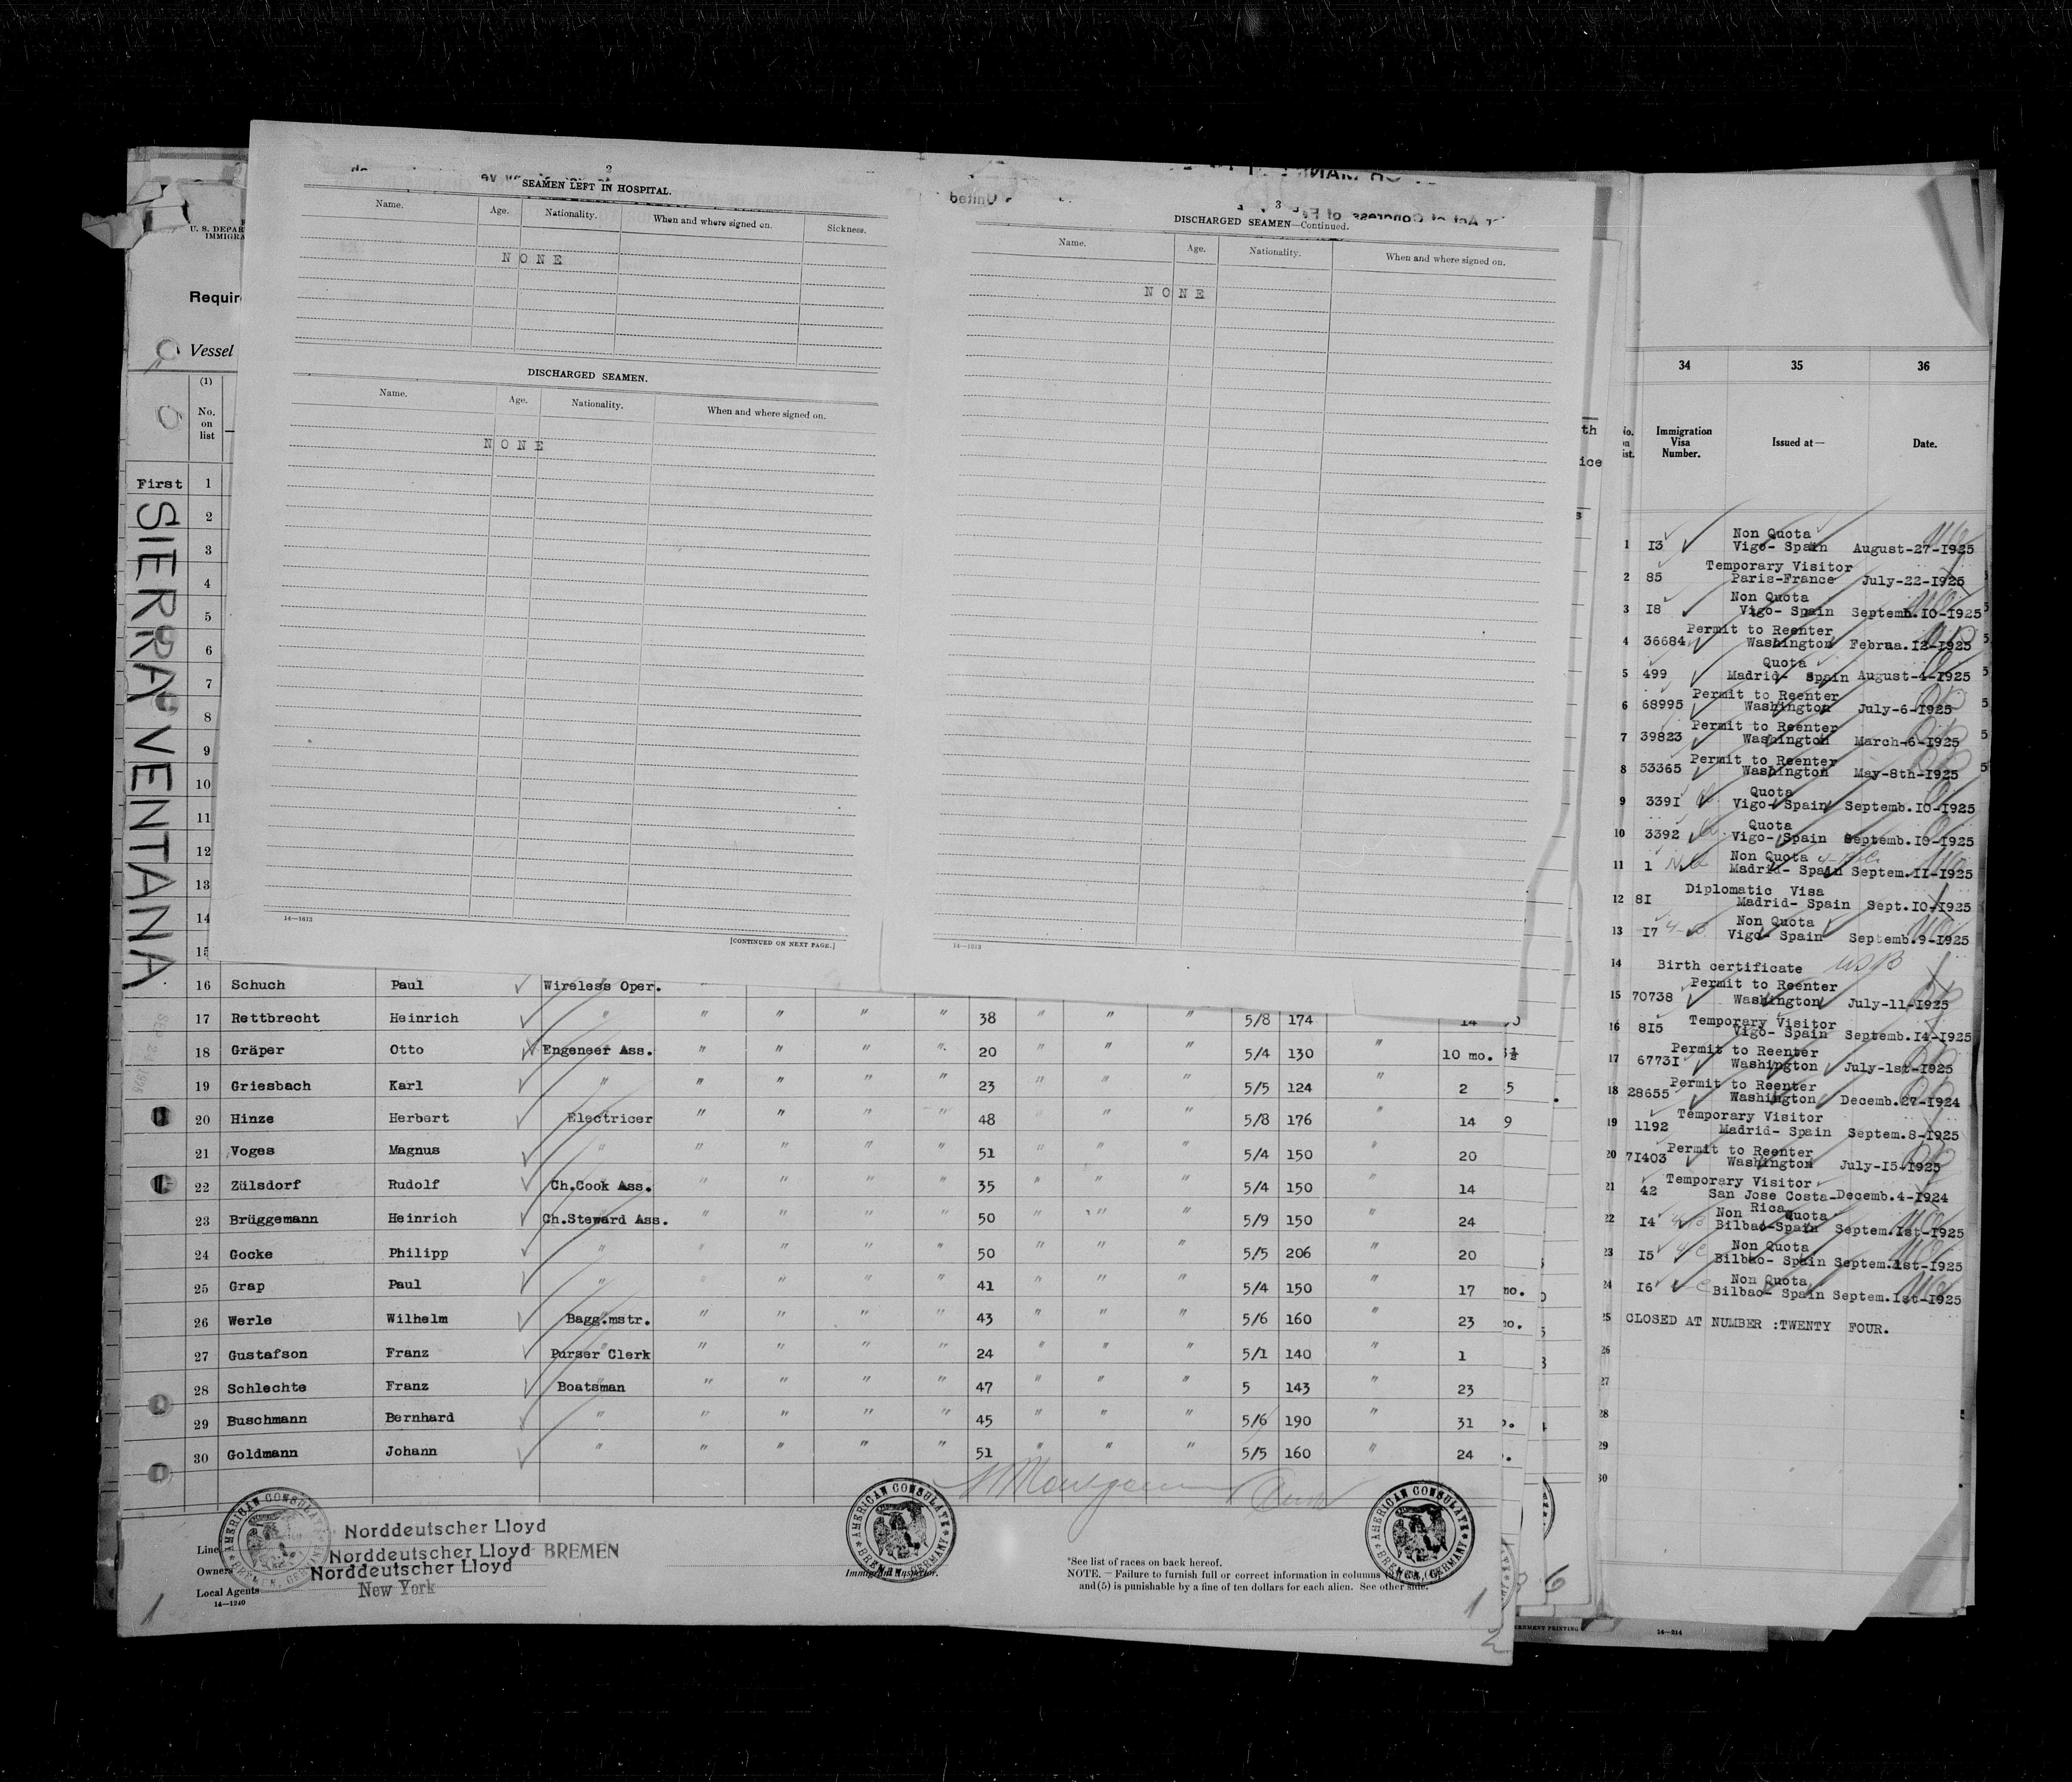 2
SEAMEN LEFT IN HOSPITAL.
Name. Age. Nationality. When and where signed on. Sickness.
NONE
DISCHARGED SEAMEN.
Name. Age. Nationality. When and where signed on.
NONE
14—1613
[CONTINUED ON NEXT PAGE.]
3
DISCHARGED SEAMEN—Continued.
Name. Age. Nationality. When and where signed on.
NONE
14—1613
U. S. DEPAR
IMMIGRA
Requir
Vessel
(1)
No.
on
list
First
SIERRA VENTANA
1
2
3
4
5
6
7
8
9
10
11
12
13
14
15
16 Schuch Paul Wireless Oper.
17 Rettbrecht Heinrich " " " " " 38 " " " 5/8 174 14
18 Gräper Otto Engeneer Ass. " " " " 20 " " " 5/4 130 " 10 mo.
19 Griesbach Karl " " " " " 23 " " " 5/5 124 " 2
20 Hinze Herbert Electricer " " " " 48 " " " 5/8 176 " 14
21 Voges Magnus " " " " " 51 " " " 5/4 150 " 20
22 Zülsdorf Rudolf Ch.Cook Ass. " " " " 35 " " " 5/4 150 " 14
23 Brüggemann Heinrich Ch.Steward Ass. " " " " 50 " " " 5/9 150 " 24
24 Gocke Philipp " " " " " 50 " " " 5/5 206 " 20
25 Grap Paul " " " " " 41 " " " 5/4 150 " 17
26 Werle Wilhelm Bagg.mstr. " " " " 43 " " " 5/6 160 " 23
27 Gustafson Franz Purser Clerk " " " " 24 " " " 5/1 140 " 1
28 Schlechte Franz Boatsman " " " " 47 " " " 5 143 " 23
29 Buschmann Bernhard " " " " " 45 " " " 5/6 190 " 31
30 Goldmann Johann " " " " " 51 " " " 5/5 160 " 24
AMERICAN CONSULATE
BREMEN, GERMANY
AMERICAN CONSULATE
BREMEN, GERMANY
AMERICAN CONSULATE
BREMEN, GERMANY
Line Norddeutscher Lloyd
Owners Norddeutscher Lloyd BREMEN
Norddeutscher Lloyd
Local Agents New York
14—1240
Immigrant Inspector.
*See list of races on back hereof.
NOTE. — Failure to furnish full or correct information in columns
and (5) is punishable by a fine of ten dollars for each alien. See other side.
1
1
2
6
34 35 36
Immigration
Visa
Number.
Issued at—
Date.
1 I3 Non Quota
Vigo- Spain August-27-I925
2 85 Temporary Visitor
Paris-France July-22-I925
3 I8 Non Quota
Vigo- Spain Septemb.IO-I925
4 36684 Permit to Reenter
Washington Februa.I2-I925
5 499 Quota
Madrid- Spain August-4-I925
6 68995 Permit to Reenter
Washington July-6-I925
7 39823 Permit to Reenter
Washington March-6-I925
8 53365 Permit to Reenter
Washington May-8th-I925
9 339I Quota
Vigo-Spain Septemb.IO-I925
10 3392 Quota
Vigo- Spain Septemb.IO-I925
11 1 Non Quota
Madrid- Spain Septem.II-I925
12 8I Diplomatic Visa
Madrid- Spain Sept.IO-I925
13 I7 Non Quota
Vigo- Spain Septemb.9-I925
14 Birth certificate
15 70738 Permit to Reenter
Washington July-11-I925
16 8I5 Temporary Visitor
Vigo- Spain Septemb.I4-I925
17 6773I Permit to Reenter
Washington July-1st-I925
18 28655 Permit to Reenter
Washington Decemb.27-I924
19 1192 Temporary Visitor
Madrid- Spain Septem.8-I925
20 7I403 Permit to Reenter
Washington July-I5-I925
21 42 Temporary Visitor
San Jose Costa-Decemb.4-I924
Rica
22 I4 Non Quota
Bilbao-Spain Septem.1st-I925
23 I5 Non Quota
Bilbao- Spain Septem.1st-I925
24 I6 Non Quota
Bilbao- Spain Septem.1st-I925
25 CLOSED AT NUMBER :TWENTY FOUR.
26
27
28
29
30
14—214